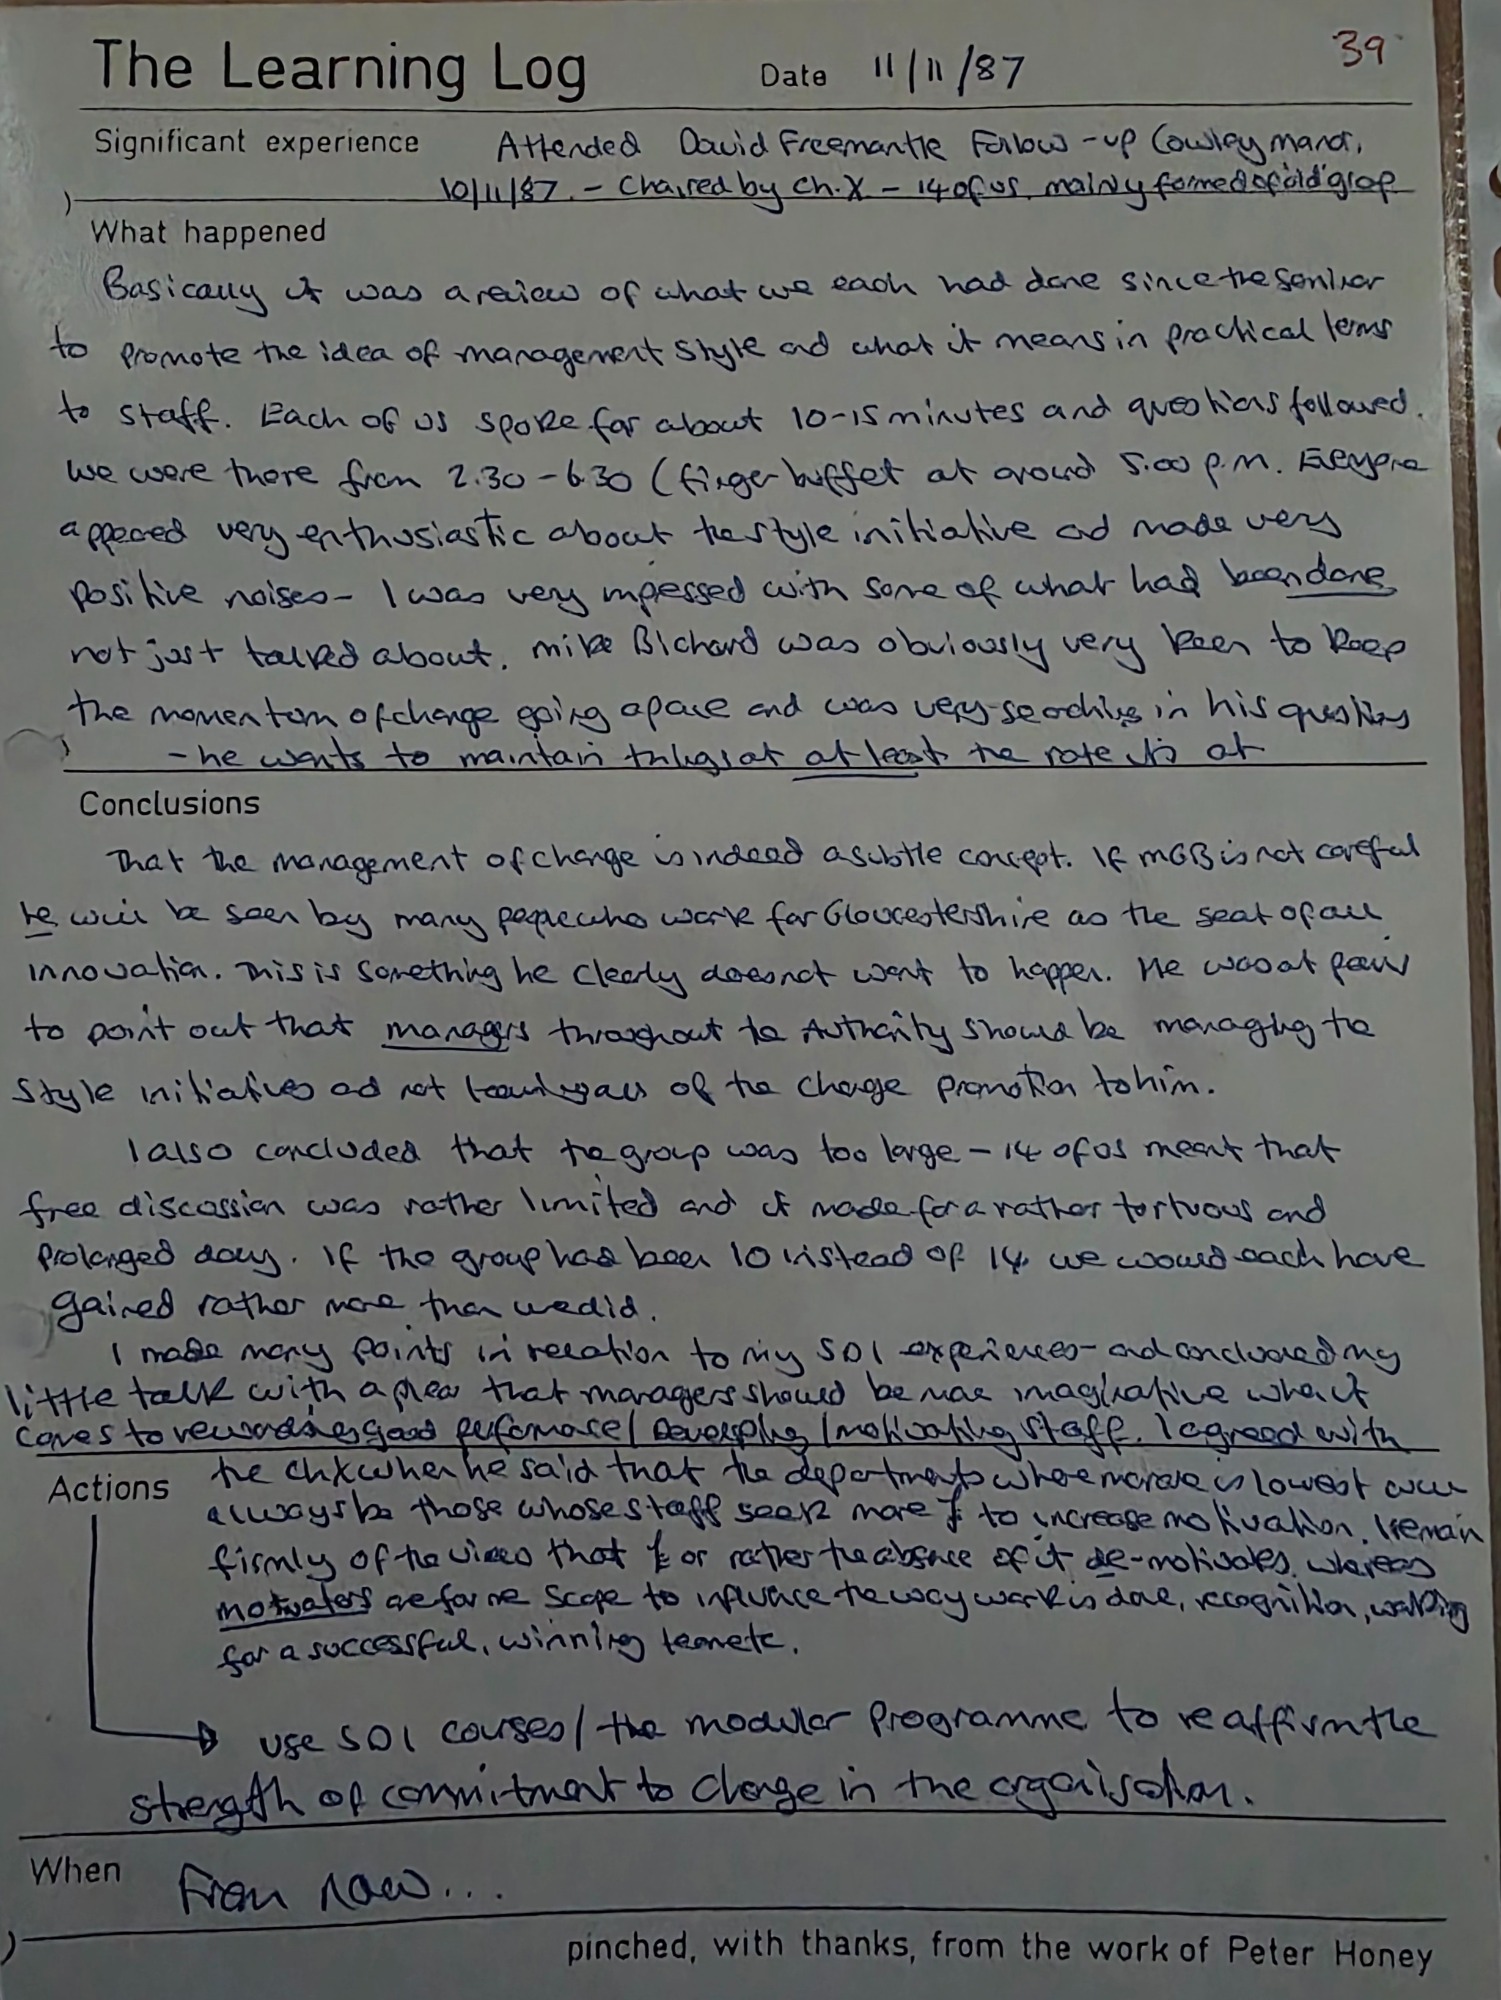 39
The Learning Log Date 11/11/87
Significant experience Attended David Freemantle Follow-up Cowley Manor,
10/11/87. - Chaired by Ch.X - 14 of us, mainly formed of 'old' grop
What happened
Basically it was a review of what we each had done since the seminar
to promote the idea of management style and what it means in practical terms
to staff. Each of us spoke for about 10-15 minutes and questions followed.
We were there from 2.30 - 6.30 (finger buffet at around 5.00 p.m. Everyone
appeared very enthusiastic about the style initiative and made very
positive noises - I was very impressed with some of what had been done
not just talked about. Mike Bichard was obviously very keen to keep
the momentum of change going apace and was very searching in his questions
- he wants to maintain things at at least the rate it's at
Conclusions
That the management of change is indeed a subtle concept. If MGB is not careful
he will be seen by many people who work for Gloucestershire as the seat of all
innovation. This is something he clearly does not want to happen. He was at pains
to point out that managers throughout the Authority should be managing the
style initiatives and not leaving all of the change promotion to him.
I also concluded that the group was too large - 14 of us meant that
free discussion was rather limited and it made for a rather tortuous and
prolonged day. If the group had been 10 instead of 14 we would each have
gained rather more than we did.
I made many points in relation to my SDI experiences - and concluded my
little talk with a plea that managers should be more imaginative when it
comes to rewarding good performance / Developing / motivating staff. I agreed with
the ChX when he said that the departments where morale is lowest will
always be those whose staff seek more £ to increase motivation. I remain
firmly of the view that £ or rather the absence of it de-motivates, whereas
motivators are for me scope to influence the way work is done, recognition, working
for a successful, winning team etc.
Actions
use SDI courses / the modular programme to reaffirm the
strength of commitment to change in the organisation.
When From now...
pinched, with thanks, from the work of Peter Honey